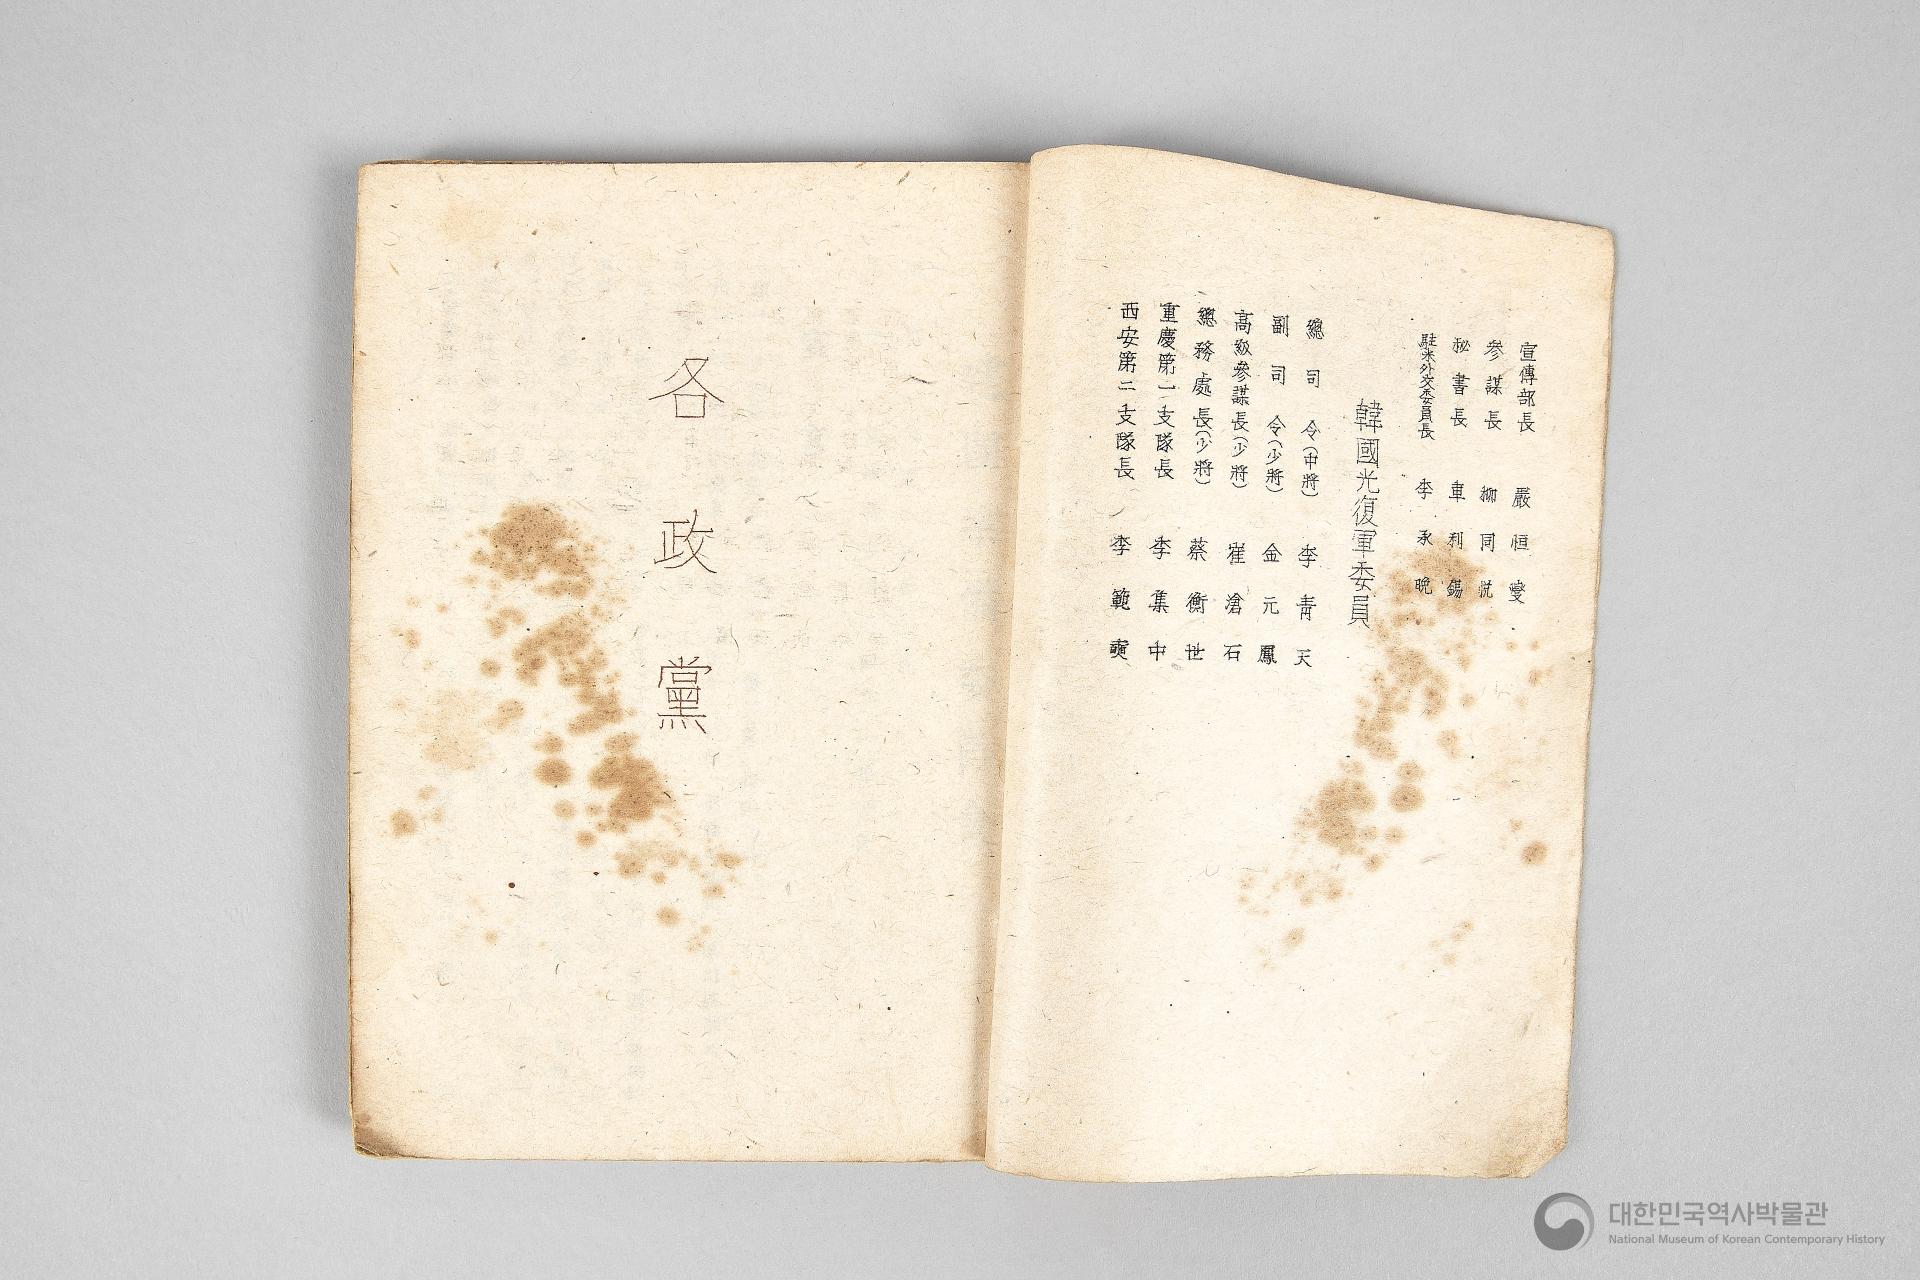 宣傳部長 嚴恒燮
參謀長 柳同悅
秘書長 車利錫
駐米外交委員長 李承晩
韓國光復軍委員
總司令(中將) 李靑天
副司令(少將) 金元鳳
高級參謀長(少將) 崔滄石
總務處長(少將) 蔡衡世
重慶第一支隊長 李集中
西安第二支隊長 李範奭
各政黨
대한민국역사박물관
National Museum of Korean Contemporary History